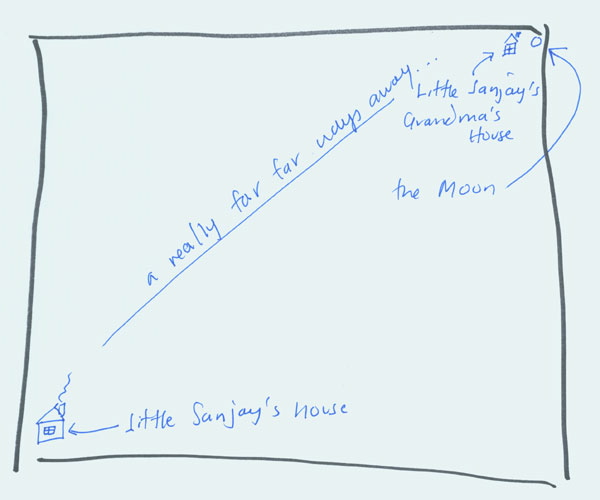 a really far far ways away...
Little Sanjay's
Grandma's
House
the Moon
little Sanjay's house